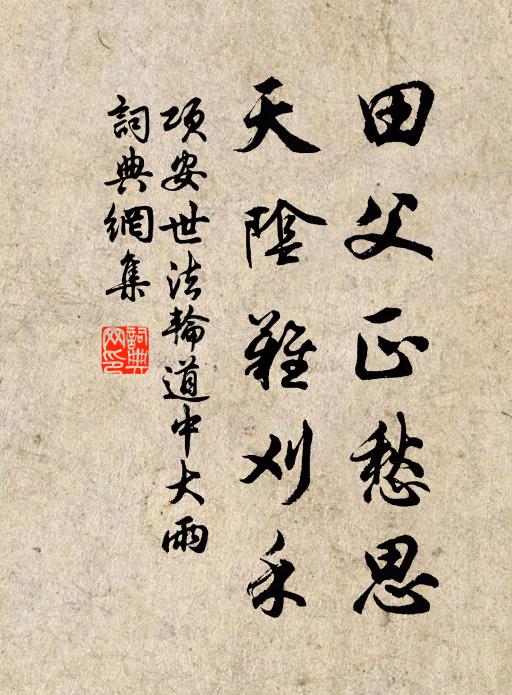 田父正愁思
天陰難刈禾
項安世法輪道中大雨
詞典網集
詞典网印